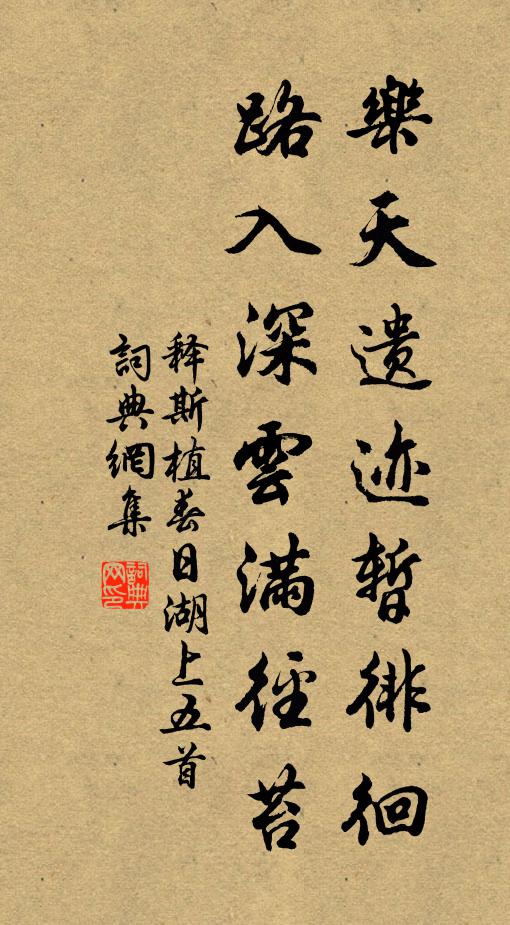 樂天遗迹暫徘徊
路入深雲满徑苔
释斯植春日湖上五首
詞典網集
詞典网印